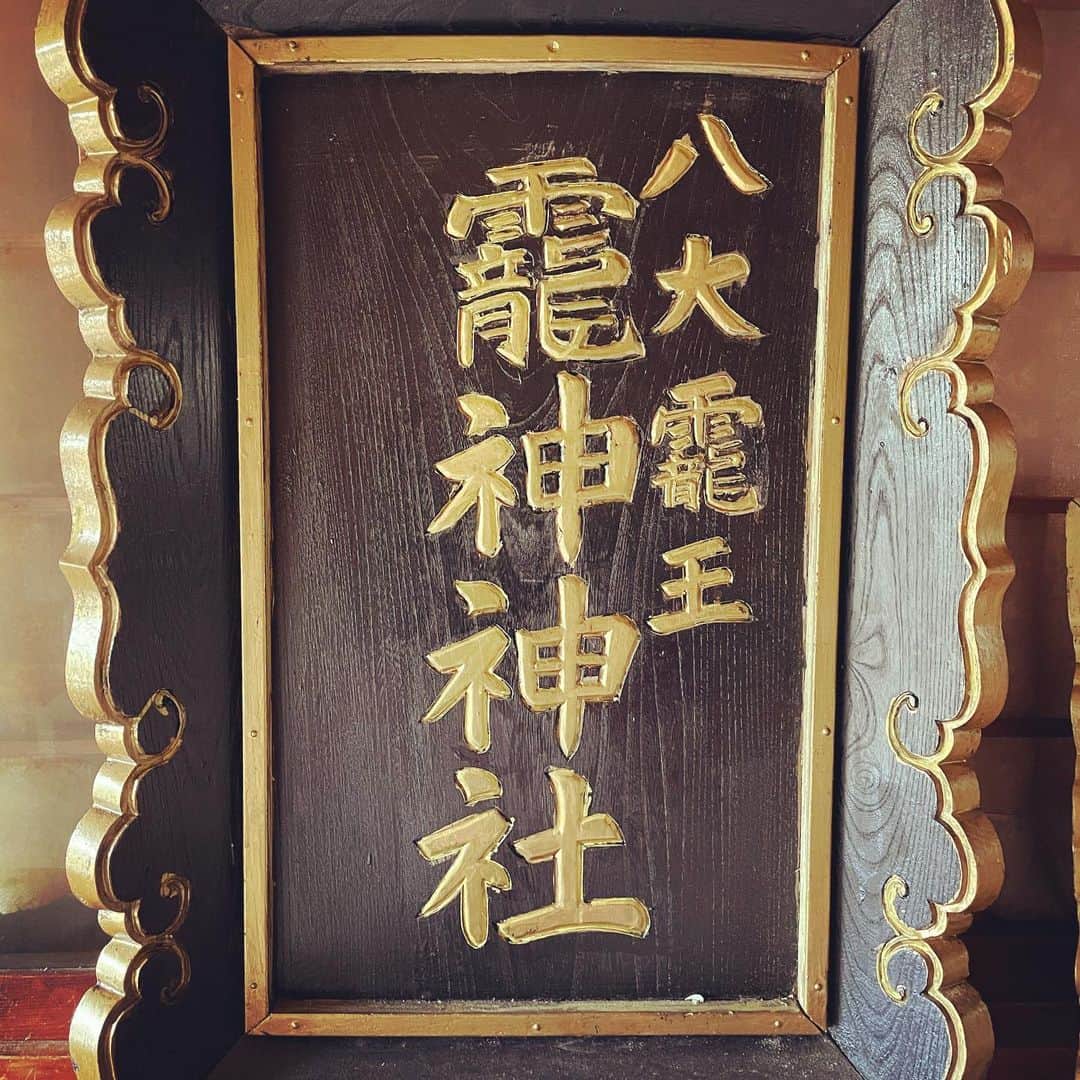 八大龗王
龗神神社